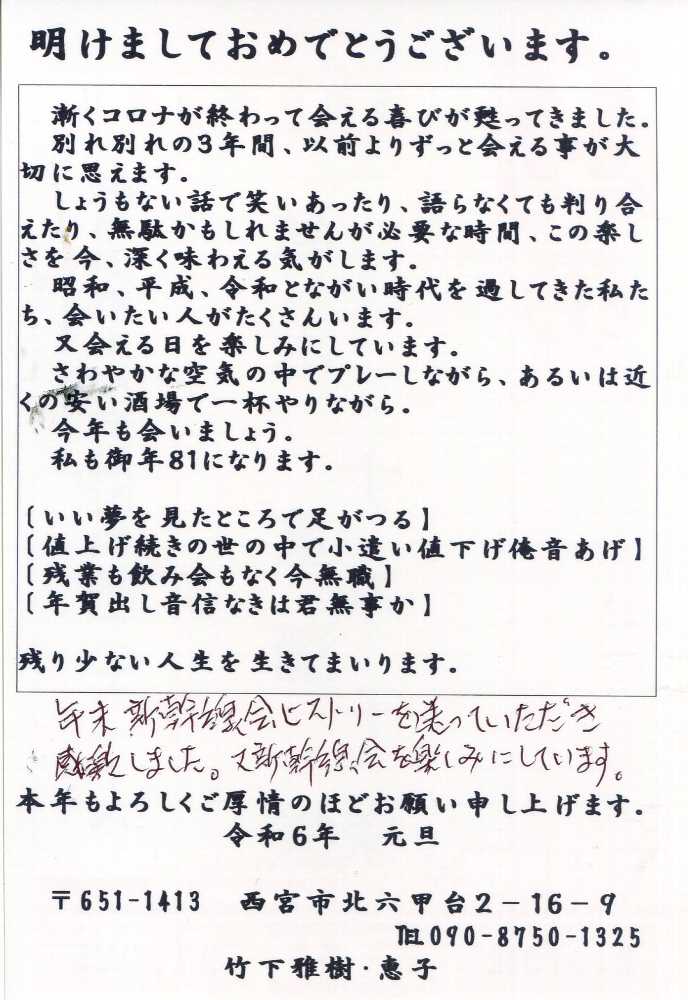 明けましておめでとうございます。
漸くコロナが終わって会える喜びが甦ってきました。
別れ別れの3年間、以前よりずっと会える事が大
切に思えます。
しょうもない話で笑いあったり、語らなくても判り合
えたり、無駄かもしれませんが必要な時間、この楽し
さを今、深く味わえる気がします。
昭和、平成、令和とながい時代を過してきた私た
ち、会いたい人がたくさんいます。
又会える日を楽しみにしています。
さわやかな空気の中でプレーしながら、あるいは近
くの安い酒場で一杯やりながら。
今年も会いましょう。
私も御年81になります。
[いい夢を見たところで足がつる]
[値上げ続きの世の中で小遣い値下げ俺音あげ]
[残業も飲み会もなく今無職]
[年賀出し音信なきは君無事か]
残り少ない人生を生きてまいります。
年末新幹線会ヒストリーを送っていただき
感謝しました。又新幹線会を楽しみにしています。
本年もよろしくご厚情のほどお願い申し上げます。
令和6年 元旦
〒651-1413 西宮市北六甲台2-16-9
℡090-8750-1325
竹下雅樹・恵子